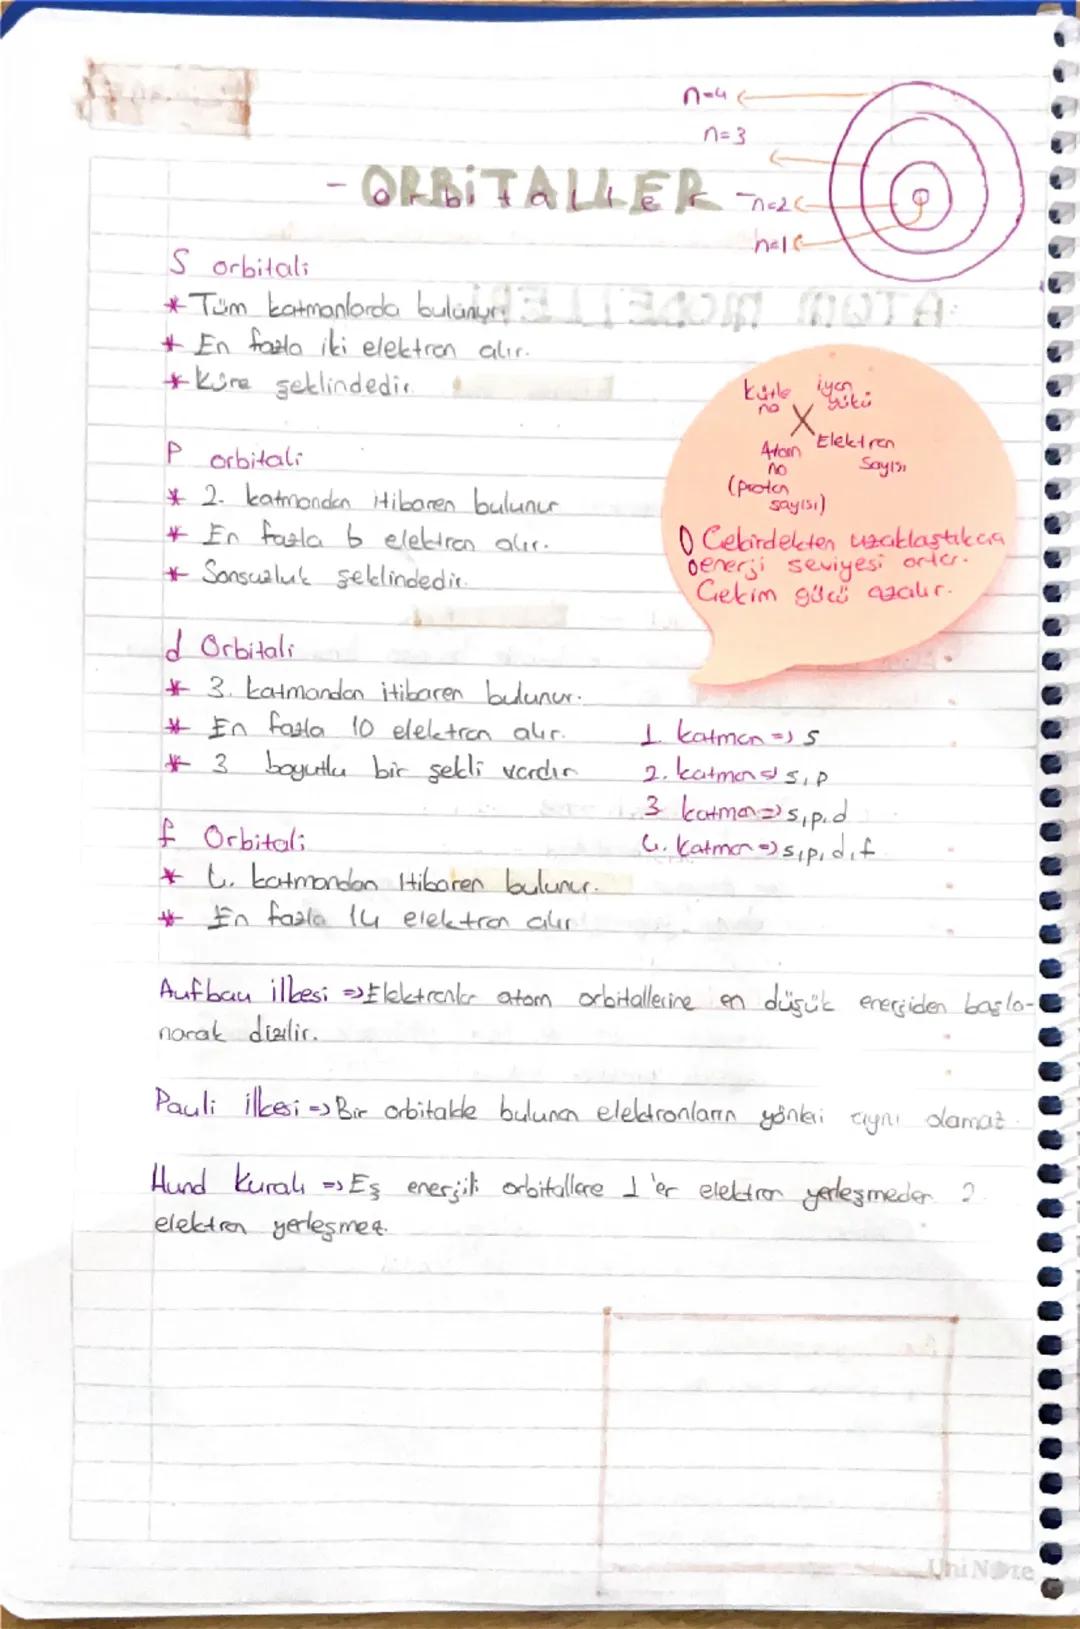 n=4
n=3
- ORBİTALLER
Orbitaller
n=2
n=1
S orbitali
* Tüm katmanlarda bulunur.
* En fazla iki elektron alır.
* Küre şeklindedir.
kütle no
iyon yükü
X
Atom no
(proton sayısı)
Elektron Sayısı
Çekirdekten uzaklaştıkca
enerji seviyesi artar.
Çekim gücü azalır.
P orbitali
* 2. katmandan itibaren bulunur
* En fazla 6 elektron alır.
* Sonsuzluk şeklindedir.
d Orbitali
* 3. katmandan itibaren bulunur.
* En fazla 10 elektron alır.
* 3 boyutlu bir şekli vardır
1. katman => s
2. katman => s, p
3 katman => s, p, d
4. katman => s, p, d, f
f Orbitali
* 4. katmandan itibaren bulunur.
* En fazla 14 elektron alır
Aufbau ilkesi => Elektronlar atom orbitallerine en düşük enerjiden başla-
narak dizilir.
Pauli ilkesi => Bir orbitalde bulunan elektronların yönleri aynı olamaz.
Hund Kuralı => Eş enerjili orbitallere 1'er elektron yerleşmeden 2
elektron yerleşmez.
ATOM MODELLERİ
UniNote